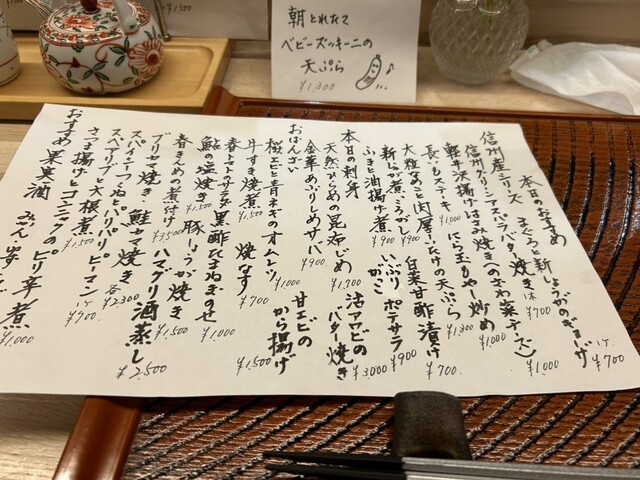 朝とれたて
ベビーズッキーニの
天ぷら
¥1,300
本日のおすすめ
まぐろと新しょうがのぎょうざ 1ケ ¥700
信州産シリーズ
信州グリーンアスパラバター焼き 1本 ¥700
軽井沢揚げはさみ焼き(へのざわ菜チーズ) ¥1,000
長いもステーキ ¥1,000
にら玉もやし炒め ¥1,000
大粒なめこと肉厚しいたけの天ぷら ¥1,300
新じゃが煮ころがし ¥900
白菜甘酢漬け ¥700
ふきと油揚げ煮 ¥900
いぶりがっこ ポテサラ ¥900
本日の刺身
天然ひらめの昆布じめ ¥1,700
活アワビのバター焼き ¥3,000
金華あぶりしめサバ ¥900
おばんざい
桜エビと青ネギのオムレツ ¥1,000
甘エビのから揚げ
牛すき焼煮 ¥1,500
焼なす ¥700
¥1,500
春トマトサラダ黒酢たまねぎのせ ¥1,000
鮎の塩焼き ¥1,500
豚しょうが焼き ¥1,500
春きんめの煮付け ¥3,500
ハマグリ酒蒸し ¥2,500
ブリカマ焼き・鮭カマ焼き 各¥2300
スパイシーつくねとパリパリピーマン 1ケ ¥700
スペアリブと大根煮 ¥1,500
さつま揚げとコンニャクのピリ辛煮 ¥1,000
おすすめ 果実酒 みかん ゆず